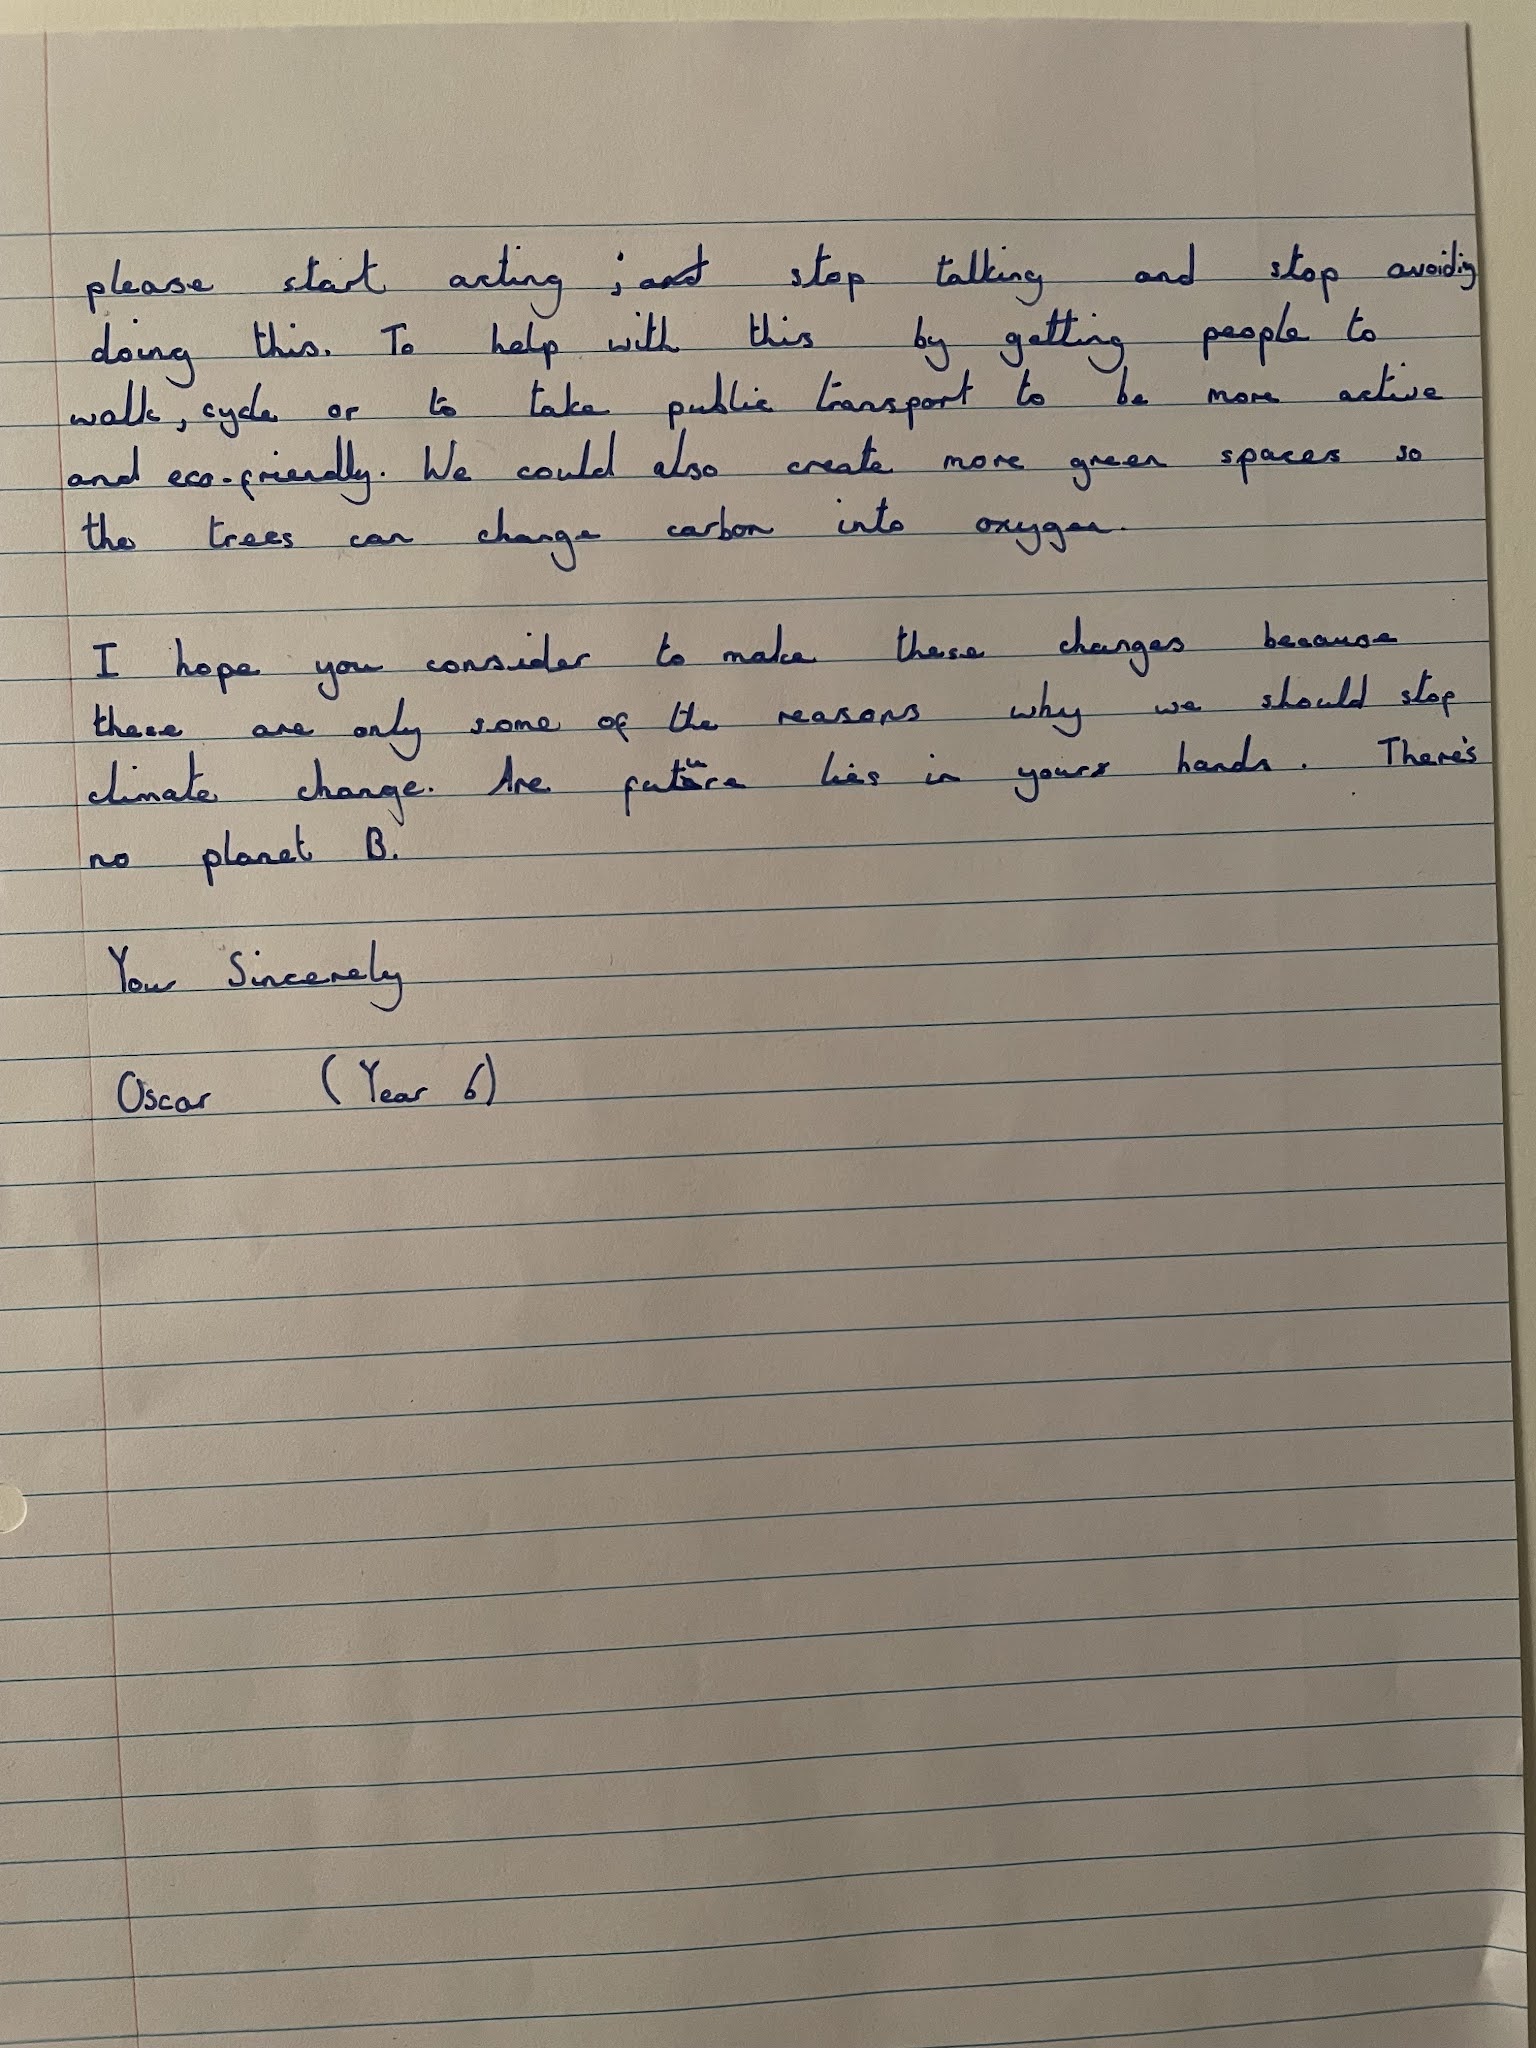 please start acting ; and stop talking and stop avoidig
doing this. To help with this by getting people to
walk, cycle or to take public transport to be more active
and eco-friendly. We could also create more green spaces so
the trees can change carbon into oxygen.
I hope you consider to make these changes because
these are only some of the reasons why we should stop
climate change. Are future lies in yours hands. There's
no planet B.
Your Sincerely
Oscar (Year 6)